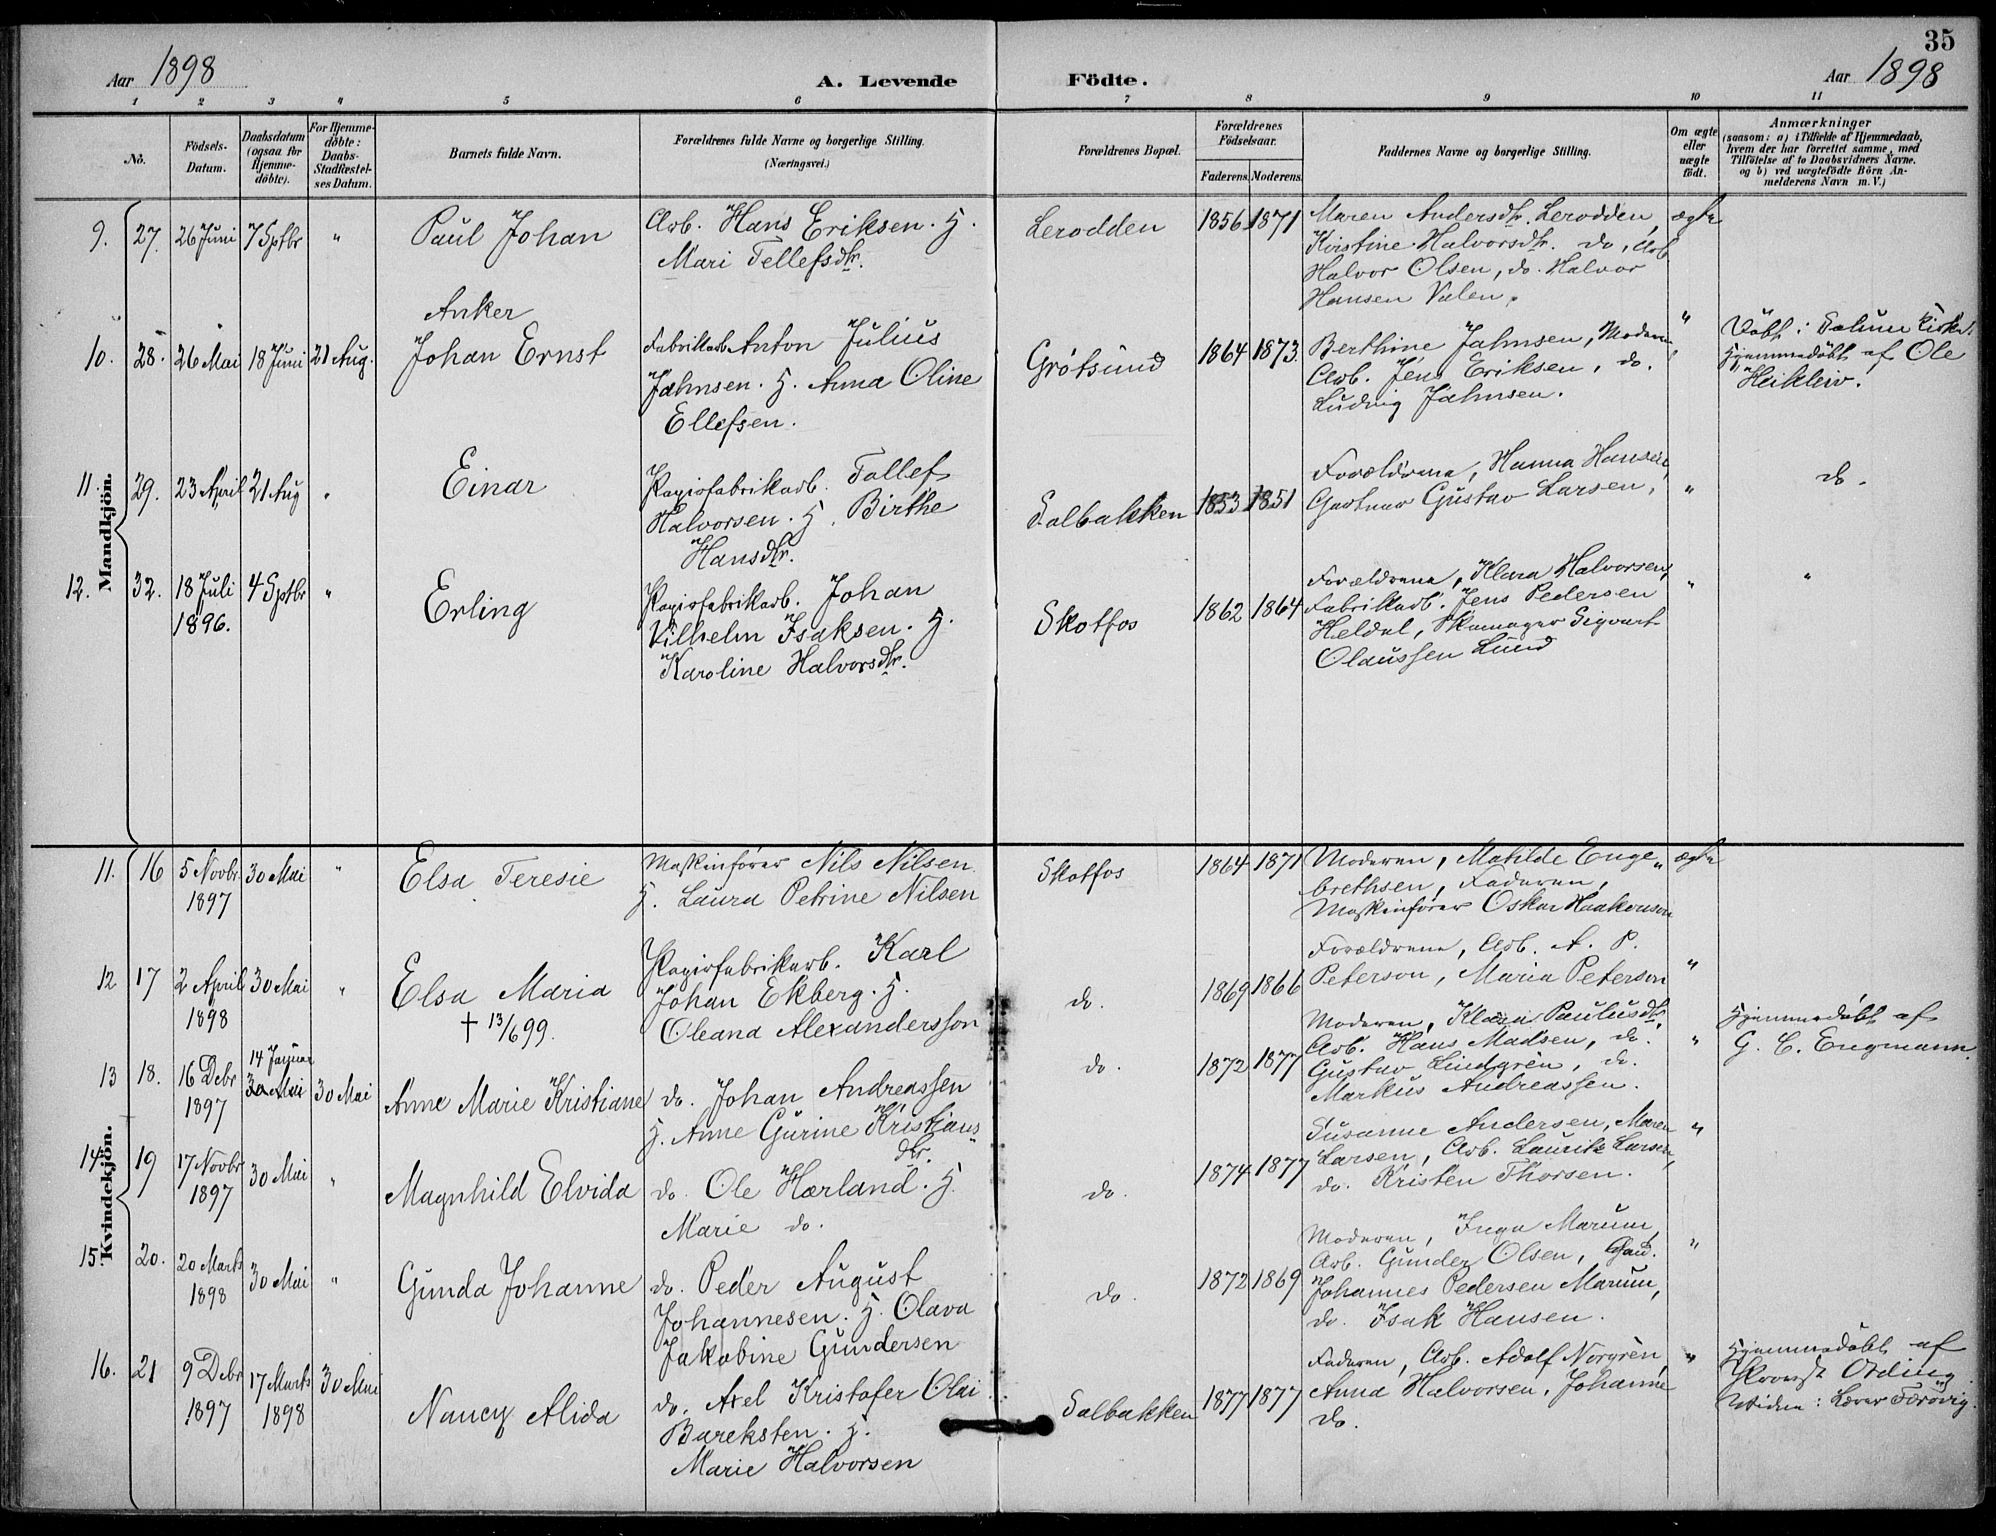 35
Aar 1898
A. Levende Födte.
Aar 1898
1 2 3 4 5 6 7 8 9 10 11
No.
Födsels-Datum.
Daabsdatum (ogsaa for Hjemme-döbte).
For Hjemme-döbte: Daabs-Stadfæstel-ses Datum.
Barnets fulde Navn.
Forældrenes fulde Navne og borgerlige Stilling.
(Næringsvei.)
Forældrenes Bopæl.
Forældrenes Födselsaar.
Faderens. Moderens.
Faddernes Navne og borgerlige Stilling.
Om ægte eller uægte födt.
Anmærkninger
(saasom: a) i Tilfælde af Hjemmedaab,
hvem der har forrettet samme, med
Tilföielse af to Daabsvidners Navne.
og b) ved uægtefödte Börn An-
melderens Navn m. V.)
Mandkjön.
9. 27. 26 Juni 7 Sptbr " Paul Johan
Arb. Hans Eriksen. H.
Mari Tellefsdtr.
Lerodden 1856 1871
Maren Andersdtr. Lerodden,
Kristine Halvorsdtr. do, Arb
Halvor Olsen, do. Halvor
Hansen Valen.
ægte
10. 28. 26 Mai 18 Juni 21 Aug.
Anker
Johan Ernst
Fabrikarb Anton Julius
Jahnsen. H. Anna Oline
Ellefsen.
Grótsund 1864 1873.
Berthine Jahnsen, Moderen,
Arb. Jens Eriksen, do.
Ludvig Jahnsen.
"
Döbt i Solum Kirke.
Hjemmedöbt af Ole
Heikleiv.
11. 29. 23 April 21 Aug " Einar
Papirfabrikarb. Tallef
Halvorsen. H. Birthe
Hansdtr.
Solbakken 1853 1851
Forældrene, Hanna Hansen,
Gartner Gustav Larsen,
"
do.
12. 32. 18 Juli 1896. 4 Sptbr " Erling
Papirfabrikarb. Johan
Vilhelm Isaksen. H.
Karoline Halvorsdtr.
Skotfos 1862 1864
Forældrene, Klara Halvorsen,
Fabrikarb. Jens Pedersen
Heldal, Skomager Sigvart
Olaussen Lund
"
"
Kvindekjön.
11. 16 5 Novbr 1897 30 Mai " Elsa Teresie
Maskinfører Nils Nilsen
H. Laura Petrine Nilsen
Skotfos 1864 1871
Moderen, Matilde Enge-
brethsen, Faderen,
Maskinfører Oskar Haakonson
ægte
12 17 2 April 1898 30 Mai " Elsa Maria
† 13/6 99.
Papirfabrikarb. Karl
Johan Ekberg. H.
Oleana Alexandersson
do. 1869 1866
Forældrene, Arb. A. P.
Peterson, Maria Peterson
"
13 18. 16 Debr 1897 14 Januar 30 Mai 30 Mai Anne Marie Kristiane
do. Johan Andreassen
H. Anne Gurine Kristians
dtr.
do. 1872 1877
Moderen, Klara Paulusdtr.
Arb. Hans Madsen, do.
Gustav Lindgrén, do.
Markus Andreassen.
"
Hjemmedöbt af
G. C. Engmann.
14 19 17 Novbr 1897 30 Mai " Magnhild Elvida
do. Ole Hærland. H.
Marie do.
do. 1874 1877
Susanne Andersen, Maren
Larsen, Arb. Lauritz Larsen,
do. Kristen Thorsen.
"
15. 20. 20 Marts 1898 30 Mai " Gunda Johanne
do. Peder August
Johannesen. H. Olava
Jakobine Gundersen
do. 1872 1869
Moderen, Inga Marum,
Arb. Gunder Olsen, Gau.
Johannes Pedersen Marum,
do. Isak Hansen.
"
16. 21 9 Debr 1897 17 Marts 1898 30 Mai Nancy Alida
do. Axel Kristofer Olai
Bareksten. H.
Marie Halvorsen
Solbakken 1877 1877
Faderen, Arb. Adolf Norgrén,
Anna Halvorsen, Johanne
do.
"
Hjemmedöbt af
Provst Ording.
Vidne: Lærer Forövig.